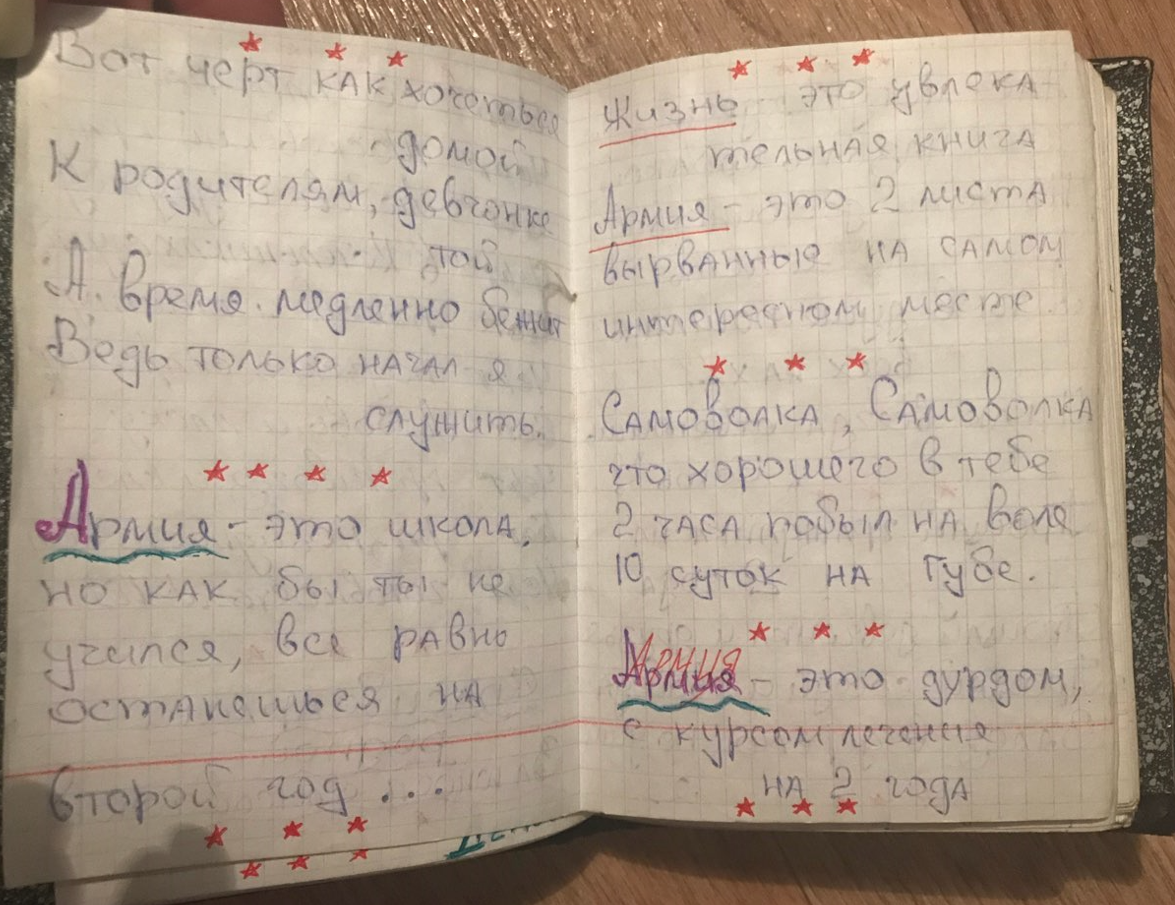 Вот черт как хочеться
домой
К родителям, девчонке
той
А время медленно бежит
Ведь только начал я
служить.
Армия - это школа,
но как бы ты не
учился, все равно
останешься на
второй год ...
Жизнь - это увлека
тельная книга
Армия - это 2 листа
вырванные на самом
интересном месте
Самоволка, Самоволка
что хорошего в тебе
2 часа побыл на воле
10 суток на губе.
Армия - это дурдом,
с курсом лечения
на 2 года